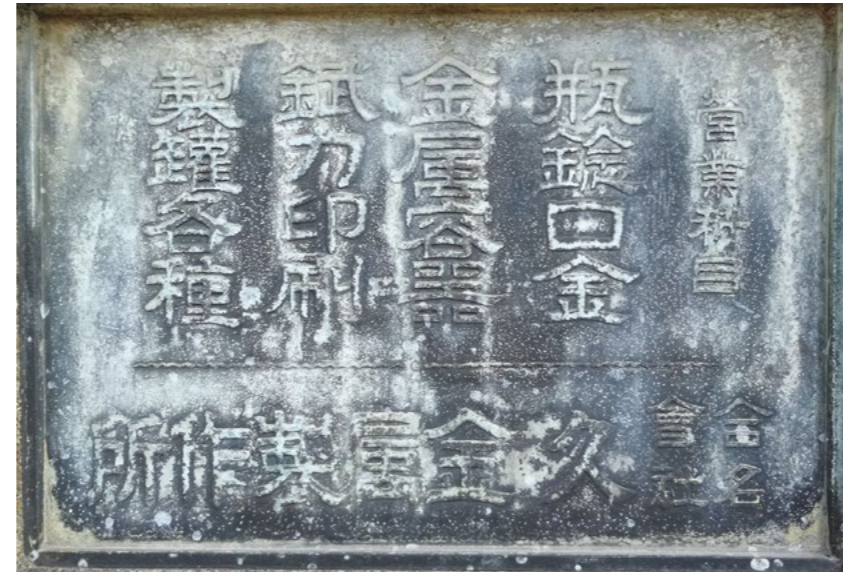 營業科目
瓶口金
金属容器
錻力印刷
製鑵各種
合名會社
久金属製作所